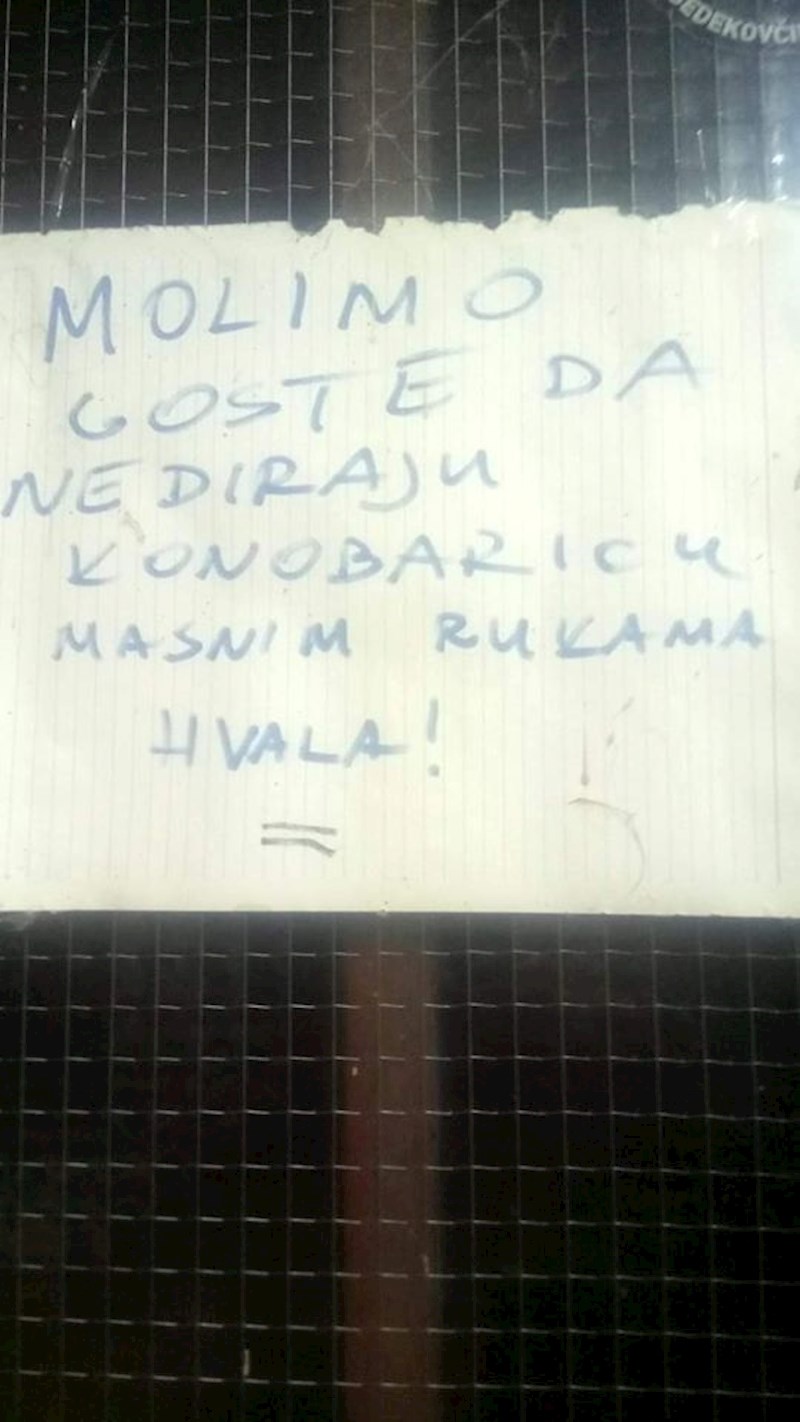 MOLIMO
GOSTE DA
NEDIRAJU
KONOBARICU
MASNIM RUKAMA
HVALA!